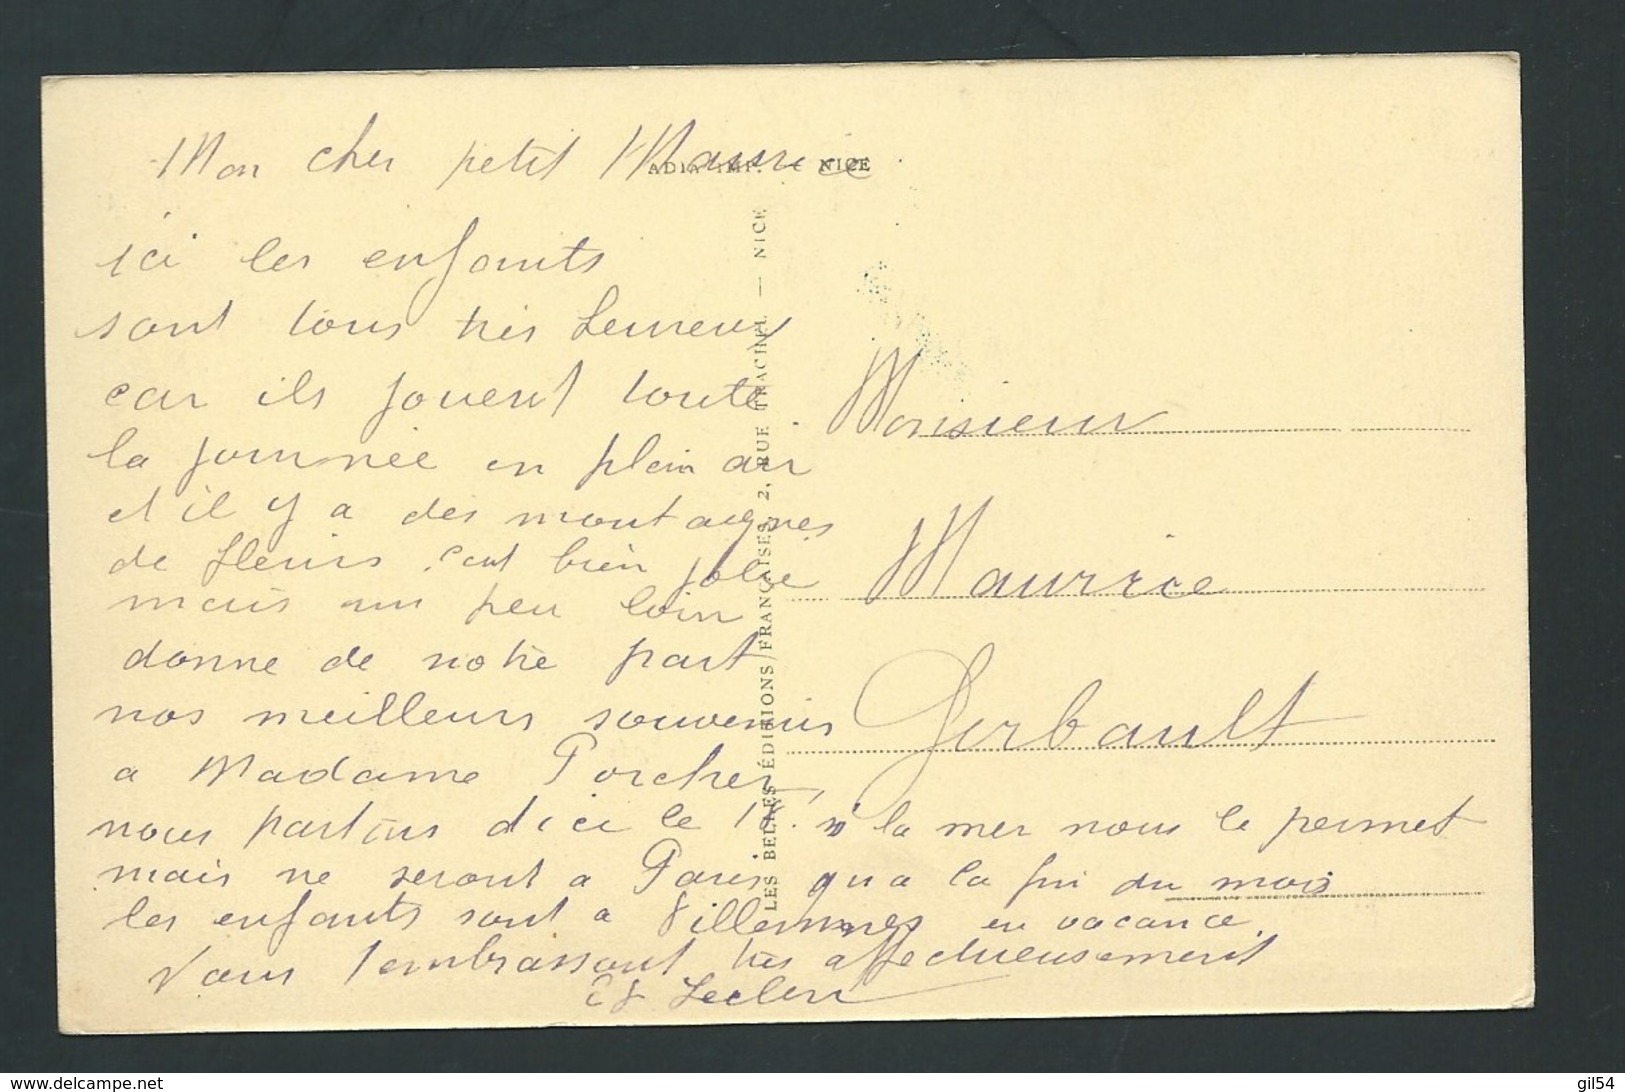 Mon cher petit Maurice
ADIA IMP. — NICE
ici les enfants
sont tous très heureux
car ils jouent toute
la journée en plein air
et il y a des montaignes
de fleurs. c'est bien jolie
mais un peu loin
donne de notre part
nos meilleurs souvenirs
a Madame Porcher,
nous partons d'ici le si la mer nous le permet
mais ne seront a Paris qu'a la fin du mois
les enfants sont a Villennes en vacance.
Nous t'embrassont très affectueusement
Leclerc
LES BELLES ÉDITIONS FRANÇAISES, 2, RUE — NICE
Monsieur
Maurice
Gerbault
www.delcampe.net
gil54